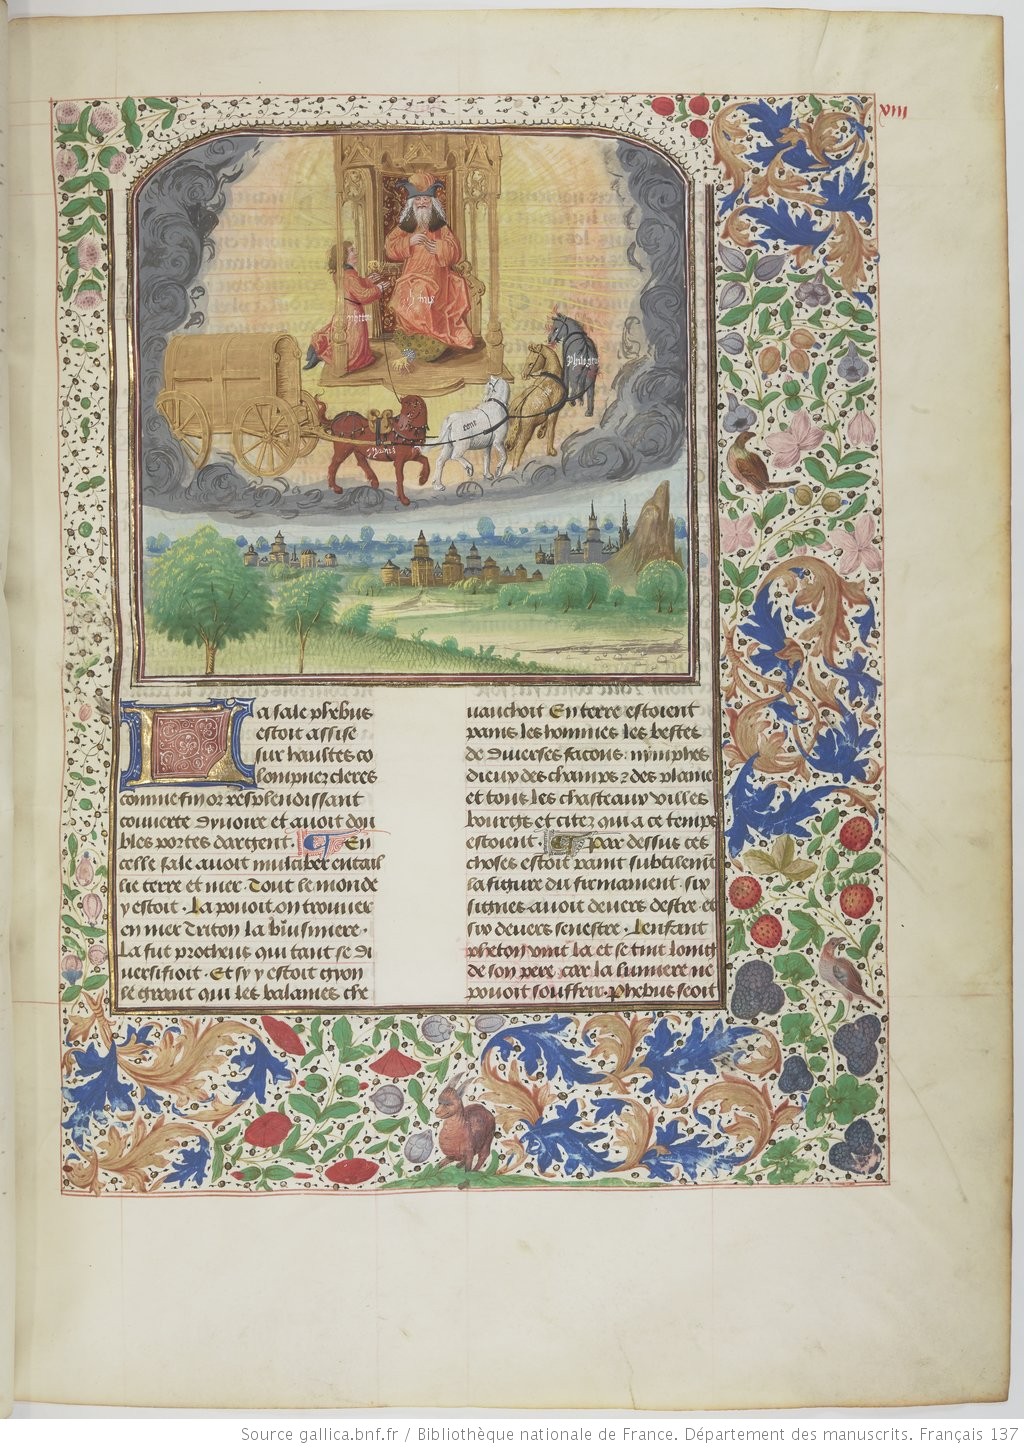 viii
pheton
phebus
Philogeus
eous
La sale phebus
estoit assise
sur haultes co
lompnez cleres
comme fin or resplendissant
couuerte dyuoire et auoit dou
bles portes dargent. En
celle sale auoit mulciber entail
lie terre et mer. Tout le monde
y estoit. La pouoit on trouuer
en mer Triton la buisiniere.
La fut protheus qui tant se di
uersifioit. Et sy y estoit egyon
le geant qui les balaines che
uauchoit En terre estoient
pains les hommes les bestes
de diuerses facons. nymphes
dieux des champs z des plains
et tous les chasteaux villes
bourgs et citez qui a ce temps
estoient. Par dessus ces
choses estoit paint subtilemt
la figure du firmament. six
signes auoit deuers destre et
six deuers senestre. Lenfant
pheton vint la et se tint loing
de son pere car la lumiere ne
pouoit souffrir. Phebus seoit
Source gallica.bnf.fr / Bibliothèque nationale de France. Département des manuscrits. Français 137